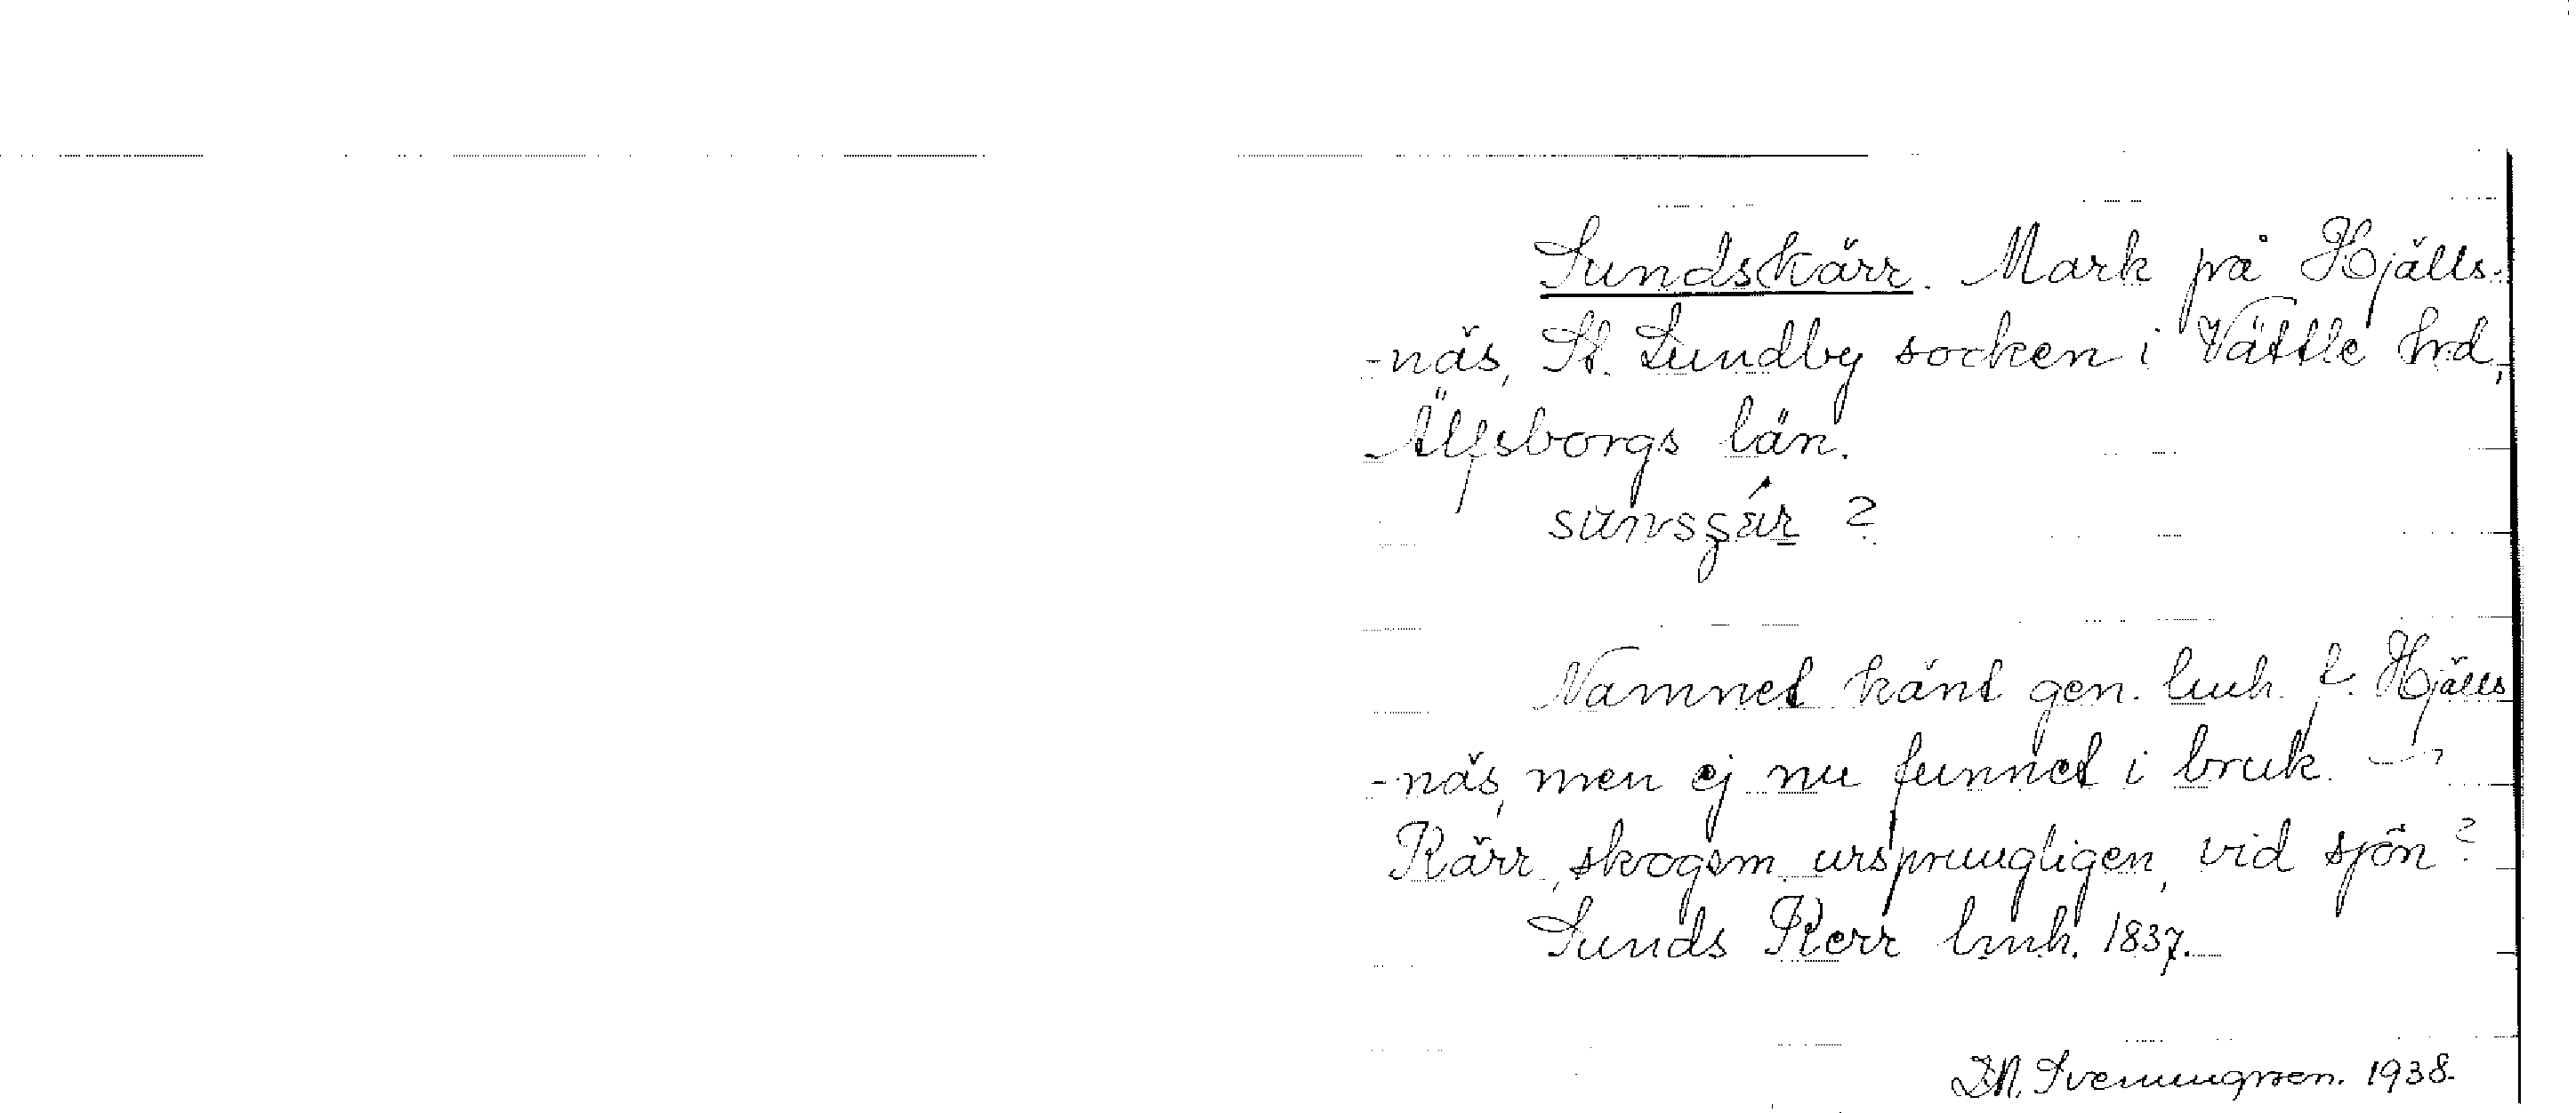 Sundskärr. Mark på Hjälls-
-näs, St. Lundby socken i Vättle hrd,
Älfsborgs län.
?
Namnet känt gen. lmh. f. Hjälls
-näs, men ej nu funnet i bruk. —
Kärr, skogsm. ursprungligen, vid sjön?
Sunds Kerr lmh. 1837.
Sveningsson. 1938.